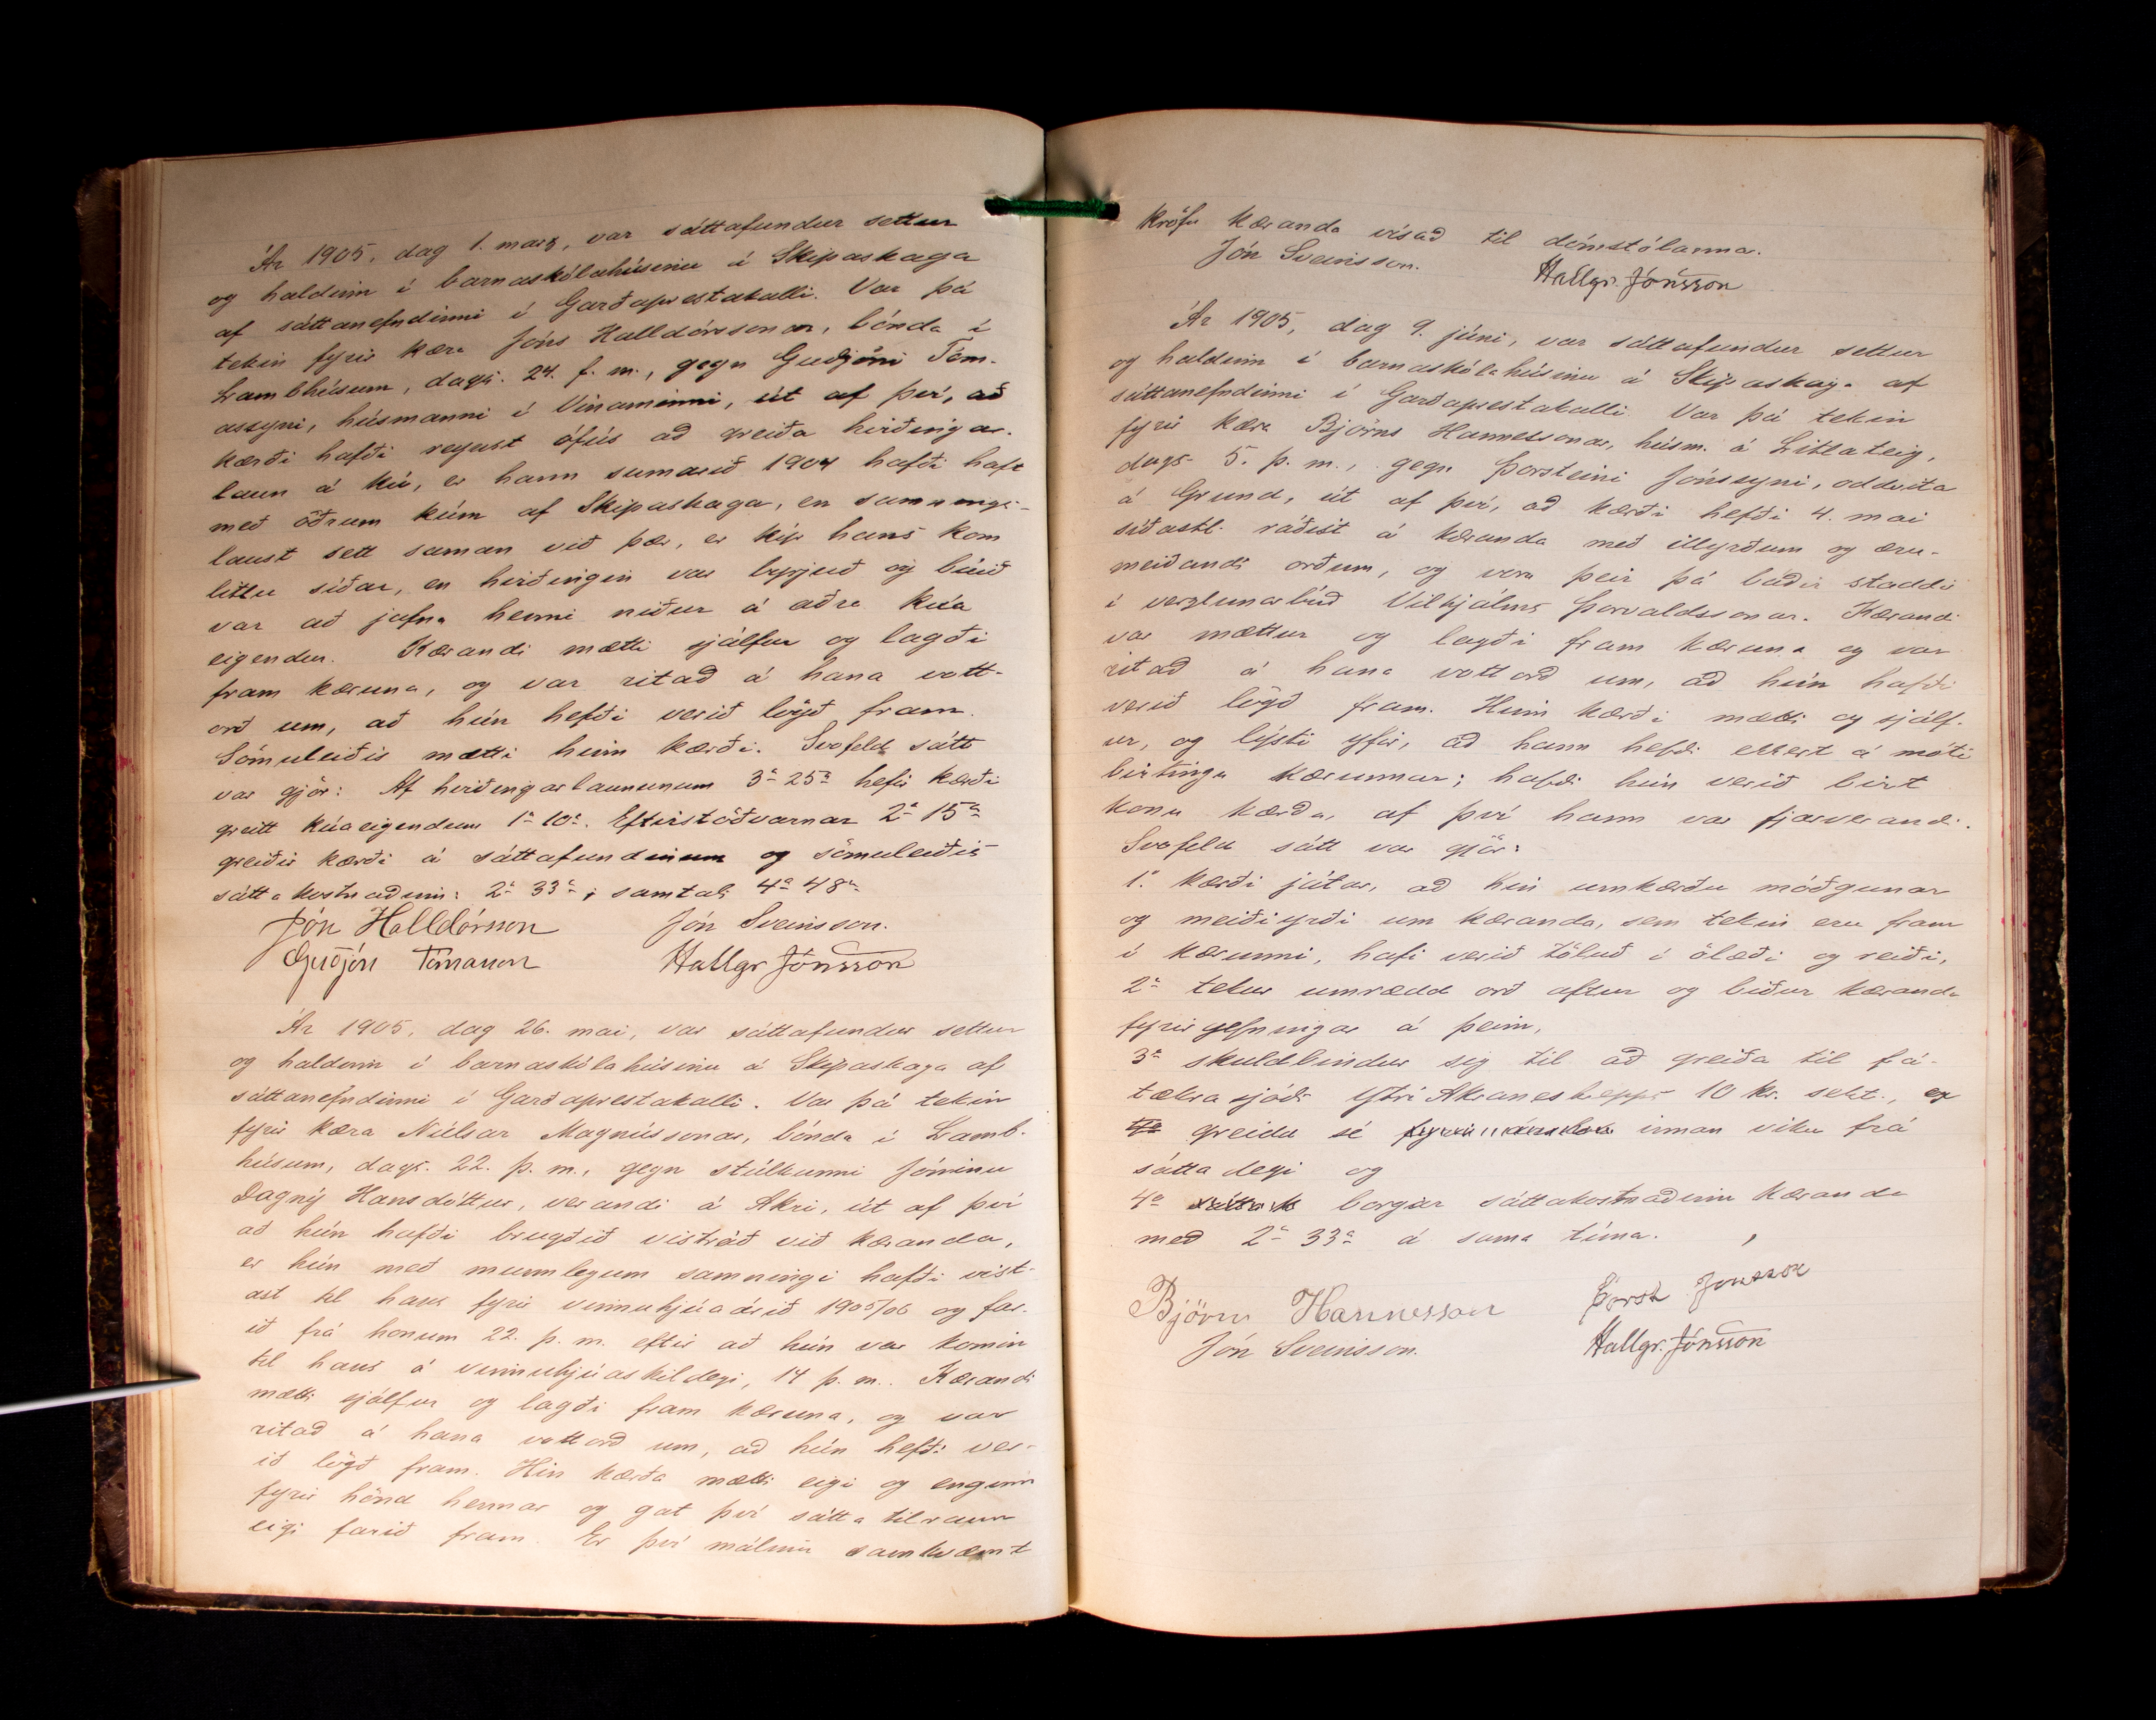 Ár 1905, dag 1. marz, var sáttafundur settur
og haldinn í barnaskólahúsinu á Skipaskaga
af sáttanefndinni í Garðaprestakalli. Var þá
tekin fyrir kæra Jóns Halldórssonar, bónda í
Lambhúsum, dags. 24. f. m., gegn Guðjóni Tóm-
assyni, húsmanni í Vinaminni, út af því, að
kærði hafði reynst ófús að greiða hirðingar-
laun á kú, er hann sumarið 1904 hafði haft
með öðrum kúm af Skipaskaga, en samnings-
laust sett saman við þær, er kýr hans kom
littu síðar, en hirðingin var byrjuð og búið
var að jafna henni niður á aðra kúa
eigendur. Kærandi mætti sjálfur og lagði
fram kæruna, og var ritað á hana vott-
orð um, að hún hefði verið lögð fram.
Sömuleiðis mætti hinn kærði. Svofeld sátt
var gjör: Af hirðingarlaununum 3 25 hefir kærði
greitt kúaeigendum 1 10. Eftirstöðvarnar 2 15
greiðir kærði á sáttafundinum og sömuleiðis
sáttakostnaðinn: 2 33; samtals 4 48
Jón Halldórsson Jón Sveinsson.
Guðjón Tómasson Hallgr Jónsson
Ár 1905, dag 26. mai, var sáttafundur settur
og haldinn í barnaskólahúsinu á Skipaskaga af
sáttanefndinni í Garðaprestakalli. Var þá tekin
fyrir kæra Níelsar Magnússonar, bónda í Lamb-
húsum, dags. 22. þ. m., gegn stúlkunni Jónínu
Dagný Hansdóttur, verandi á Akri, út af því
að hún hafði brugðið vistráð við kæranda,
er hún með munnlegum samningi hafði vist-
ast til hans fyrir vinnuhjúaárið 1905/06 og far-
ið frá honum 22. þ. m. eftir að hún var komin
til hans á vinnuhjúaskildegi, 14 þ. m.. Kærandi
mætti sjálfur og lagði fram kæruna, og var
ritað á hana vottorð um, að hún hefði ver-
ið lögð fram. Hin kærða mætti eigi og enginn
fyrir hönd hennar og gat því sáttatilraun
eigi farið fram. Er því málinu samkvæmt
kröfu kæranda vísað til dómstólanna.
Jón Sveinsson. Hallgr. Jónsson
Ár 1905, dag 9. júni, var sáttafundur settur
og haldinn í barnaskólahúsinu á Skipaskaga af
sáttanefndinni í Garðaprestakalli. Var þá tekin
fyrir kæra Björns Hannessonar, húsm. á Litlateig,
dags. 5. þ. m., gegn Þorsteini Jónssyni, oddvita
á Grund, út af því, að kærði hefði 4. mai
síðastl. ráðist á kæranda með illyrðum og æru-
meiðandi orðum, og voru þeir þá báðir staddir
í verzlunarbúð Vilhjálms Þorvaldssonar. Kærandi
var mættur og lagði fram kæruna og var
ritað á hana vottorð um, að hún hafði
verið lögð fram. Hinn kærði mætti og sjálf-
ur, og lýsti yfir, að hann hefði ekkert á móti
birtingu kærunnar; hafði hún verið birt
konu kærða, af því hann var fjarverandi.
Svofeld sátt var gjör:
1. kærði játar, að hin umkærðu móðgunar
og meiðiyrði um kæranda, sem tekin eru fram
í kærunni, hafi verið töluð í ölæði og reiði,
2 tekur umrædd orð aftur og biður kæranda
fyrirgefningar á þeim,
3 skuldbindur sig til að greiða til fá-
tækrasjóðs Ytri Akraneshrepps 10 kr. sekt, er
greidd sé innan viku frá
sáttadegi og
4 borgar sáttakostnaðinn kæranda
með 2 33 á sama tíma.
Björn Hannesson Þorst Jónsson
Jón Sveinsson. Hallgr. Jónsson